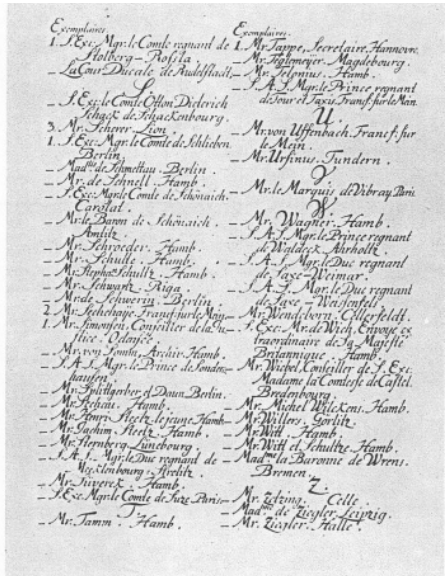 Exemplaires.
1. S. Exc. Mgr. le Comte regnant de
Stolberg – Rosla.
– La Cour Ducale de Rudolstadt.
S
– S. Exc. le Comte Otton Diderich
Schack de Schackenbourg.
3. Mr. Scherer. Lion
1. S. Exc. Mgr. le Comte de Schlieben.
Berlin.
– Mad.me de Schmettau. Berlin.
– Mr. de Schnell. Hamb.
– S. Exc. Mgr. le Comte de Schönaich.
Carolat.
– Mr. le Baron de Schönaich.
Amtitz.
– Mr. Schroeder. Hamb.
– Mr. Schulle. Hamb.
– Mr. Stephan Schultz. Hamb.
– Mr. Schwartz. Riga.
– Mr. de Schwerin. Berlin
2. Mr. Sechehaye. Francf: sur le Mein.
1. Mr. Simonsen, Conseiller de la Ju-
stice. Odensée
– Mr. von Somm, Archiv. Hamb.
– S. A. S. Mgr. le Prince de Sonders-
hausen.
– Mr. Splittgerber et Daun. Berlin.
– Mr. Hamb.
– Mr. Henri Steetz, le jeune. Hamb.
– Mr. Joachim Steetz. Hamb.
– Mr. Sternberg. Lunebourg.
– S. A. S. Mgr. le Duc regnant de
Mecklenbourg. Strelitz.
– Mr. Stüverex. Hamb.
– S. Exc. Mgr. le Comte de Suze. Paris.
T.
– Mr. Tamm. Hamb.
Exemplaires.
1. Mr. Tappe, Secretaire. Hannovre.
– Mr. Teglemeÿer. Magdebourg.
– Mr. Telonius. Hamb.
– S. A. S. Mgr. le Prince regnant
de Tour et Taxis. Francf: sur le Main.
U.
– Mr. von Uffenbach. Francf: sur
le Mein.
– Mr. Ursinus. Tundern.
V
– Mr. le Marquis de Vibray. Paris
W
– Mr. Wagner. Hamb.
– S. A. S. Mgr. le Prince regnant
de Waldeck. Ahroltz.
– S. A. S. Mgr. le Duc regnant
de Saxe – Weimar.
– S. A. S. Mgr. le Duc regnant
de Saxe – Weissenfels.
– Mr. Wendeborn. Cllerfeldt.
– S. Exc. Mr. de Wich, Envoyé ex
traordinaire de Sa Majesté
Britannique. Hamb.
– Mr. Wiebel, Conseiller de S. Exc.
Madame la Comtesse de Castel.
Bredenbourg.
– Mr. Michel Wilckens. Hamb.
– Mr. Willers. Görlitz.
– Mr. Witt. Hamb.
– Mr. Witt et Schultze. Hamb.
– Mad.me la Baronne de Wrens.
Bremen.
Z.
– Mr. Zelzing. Celle.
– Mad.me de Ziegler. Leipzig.
– Mr. Ziegler. Halle.